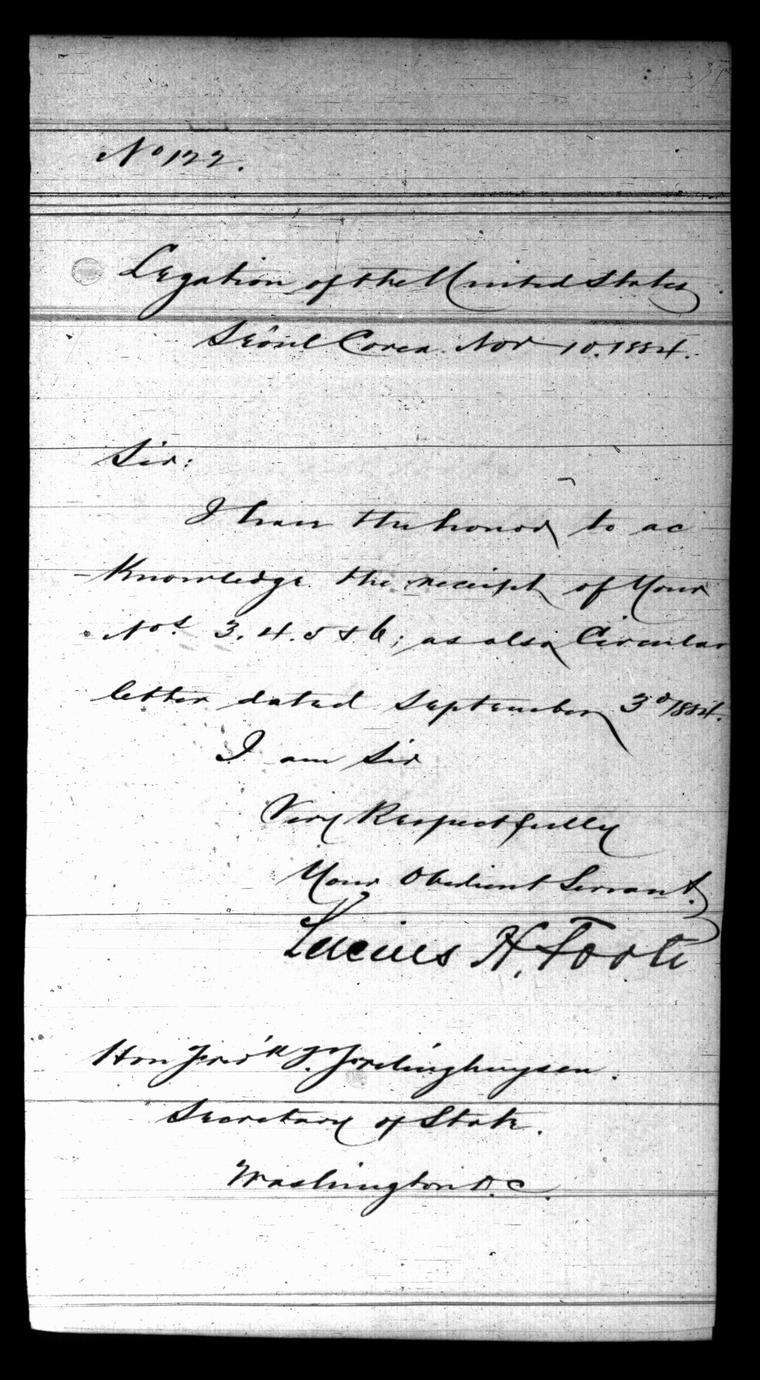 No 122.
Legation of the United States
Séoul Corea. Nov 10. 1884.
Sir:
I have the honor to ac
knowledge the receipt of Your
Nos. 3. 4. 5 & 6; as also Circular
letter dated September 3d 1884.
I am Sir
Very Respectfully
Your Obedient Servant.
Lucius H. Foote
Hon Fred'k T. Frelinghuysen.
Secretary of State.
Washington D.C.